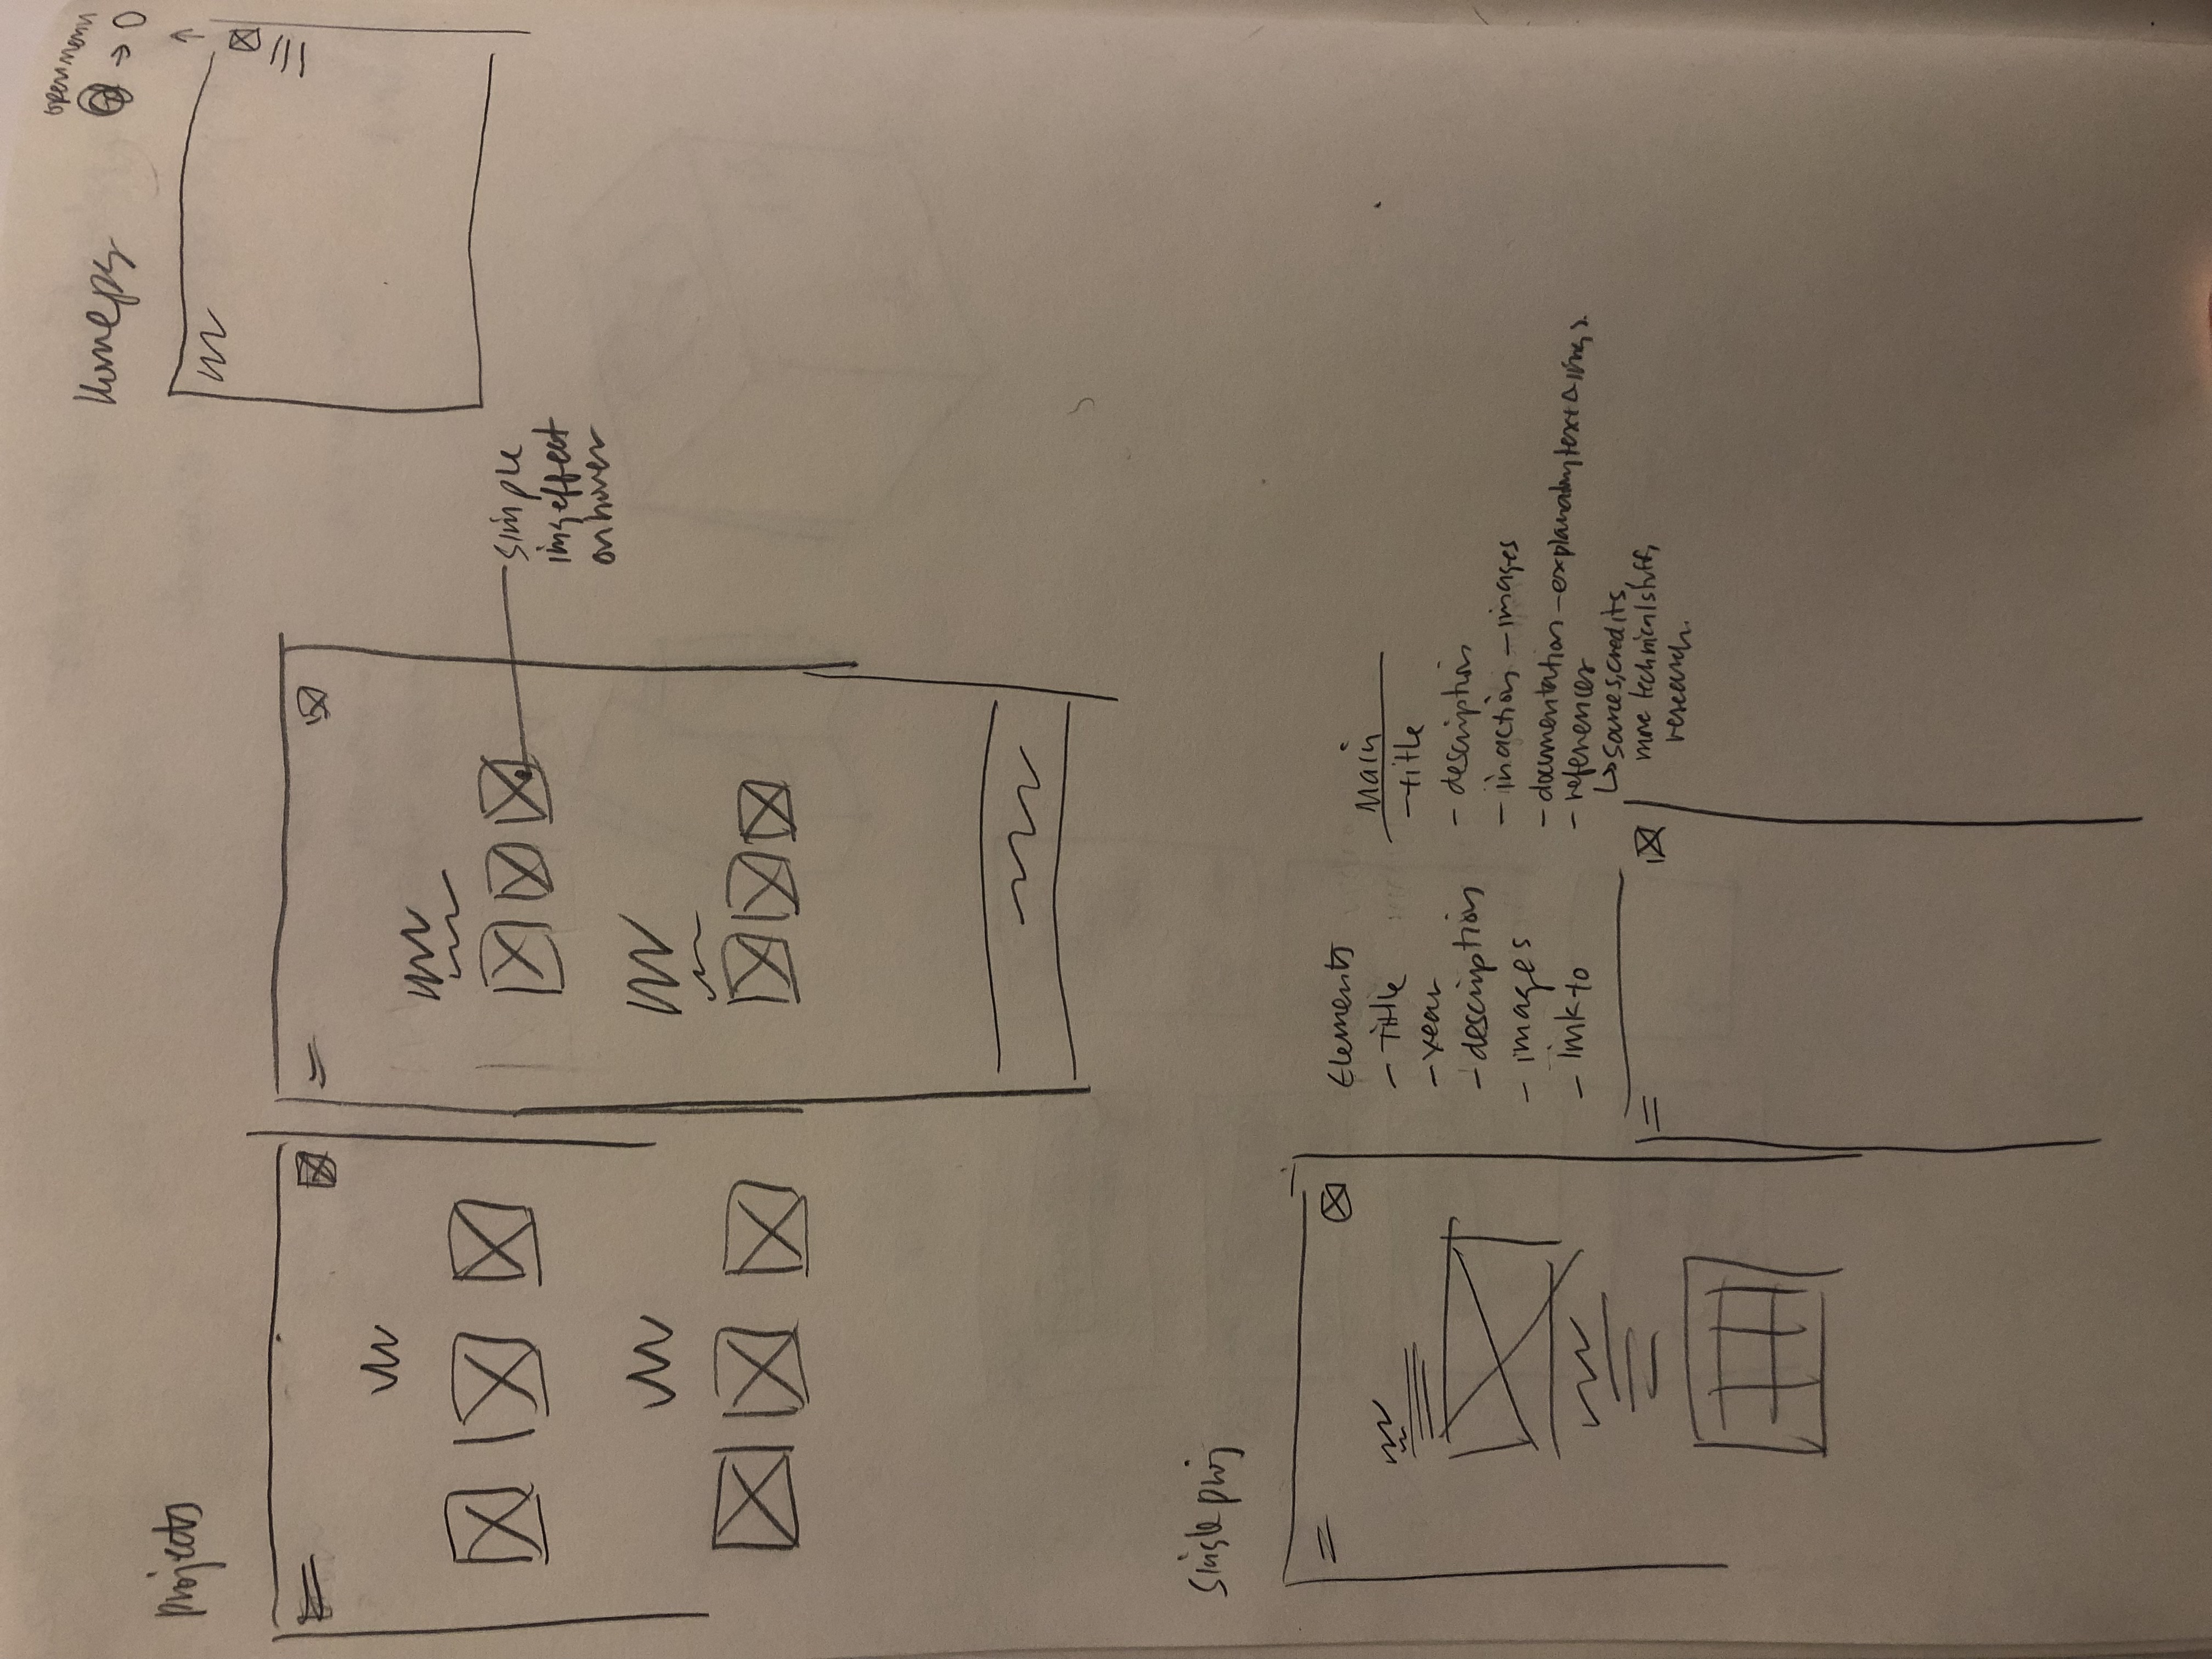 Homepg
open menu
Projects
simple
img effect
on hover
Single proj
Elements
- Title
- year
- description
- images
- link to
Main
- title
- description
- in action - images
- documentation - explanatory text
- references
↳ sources, credits,
more technical stuff,
research.